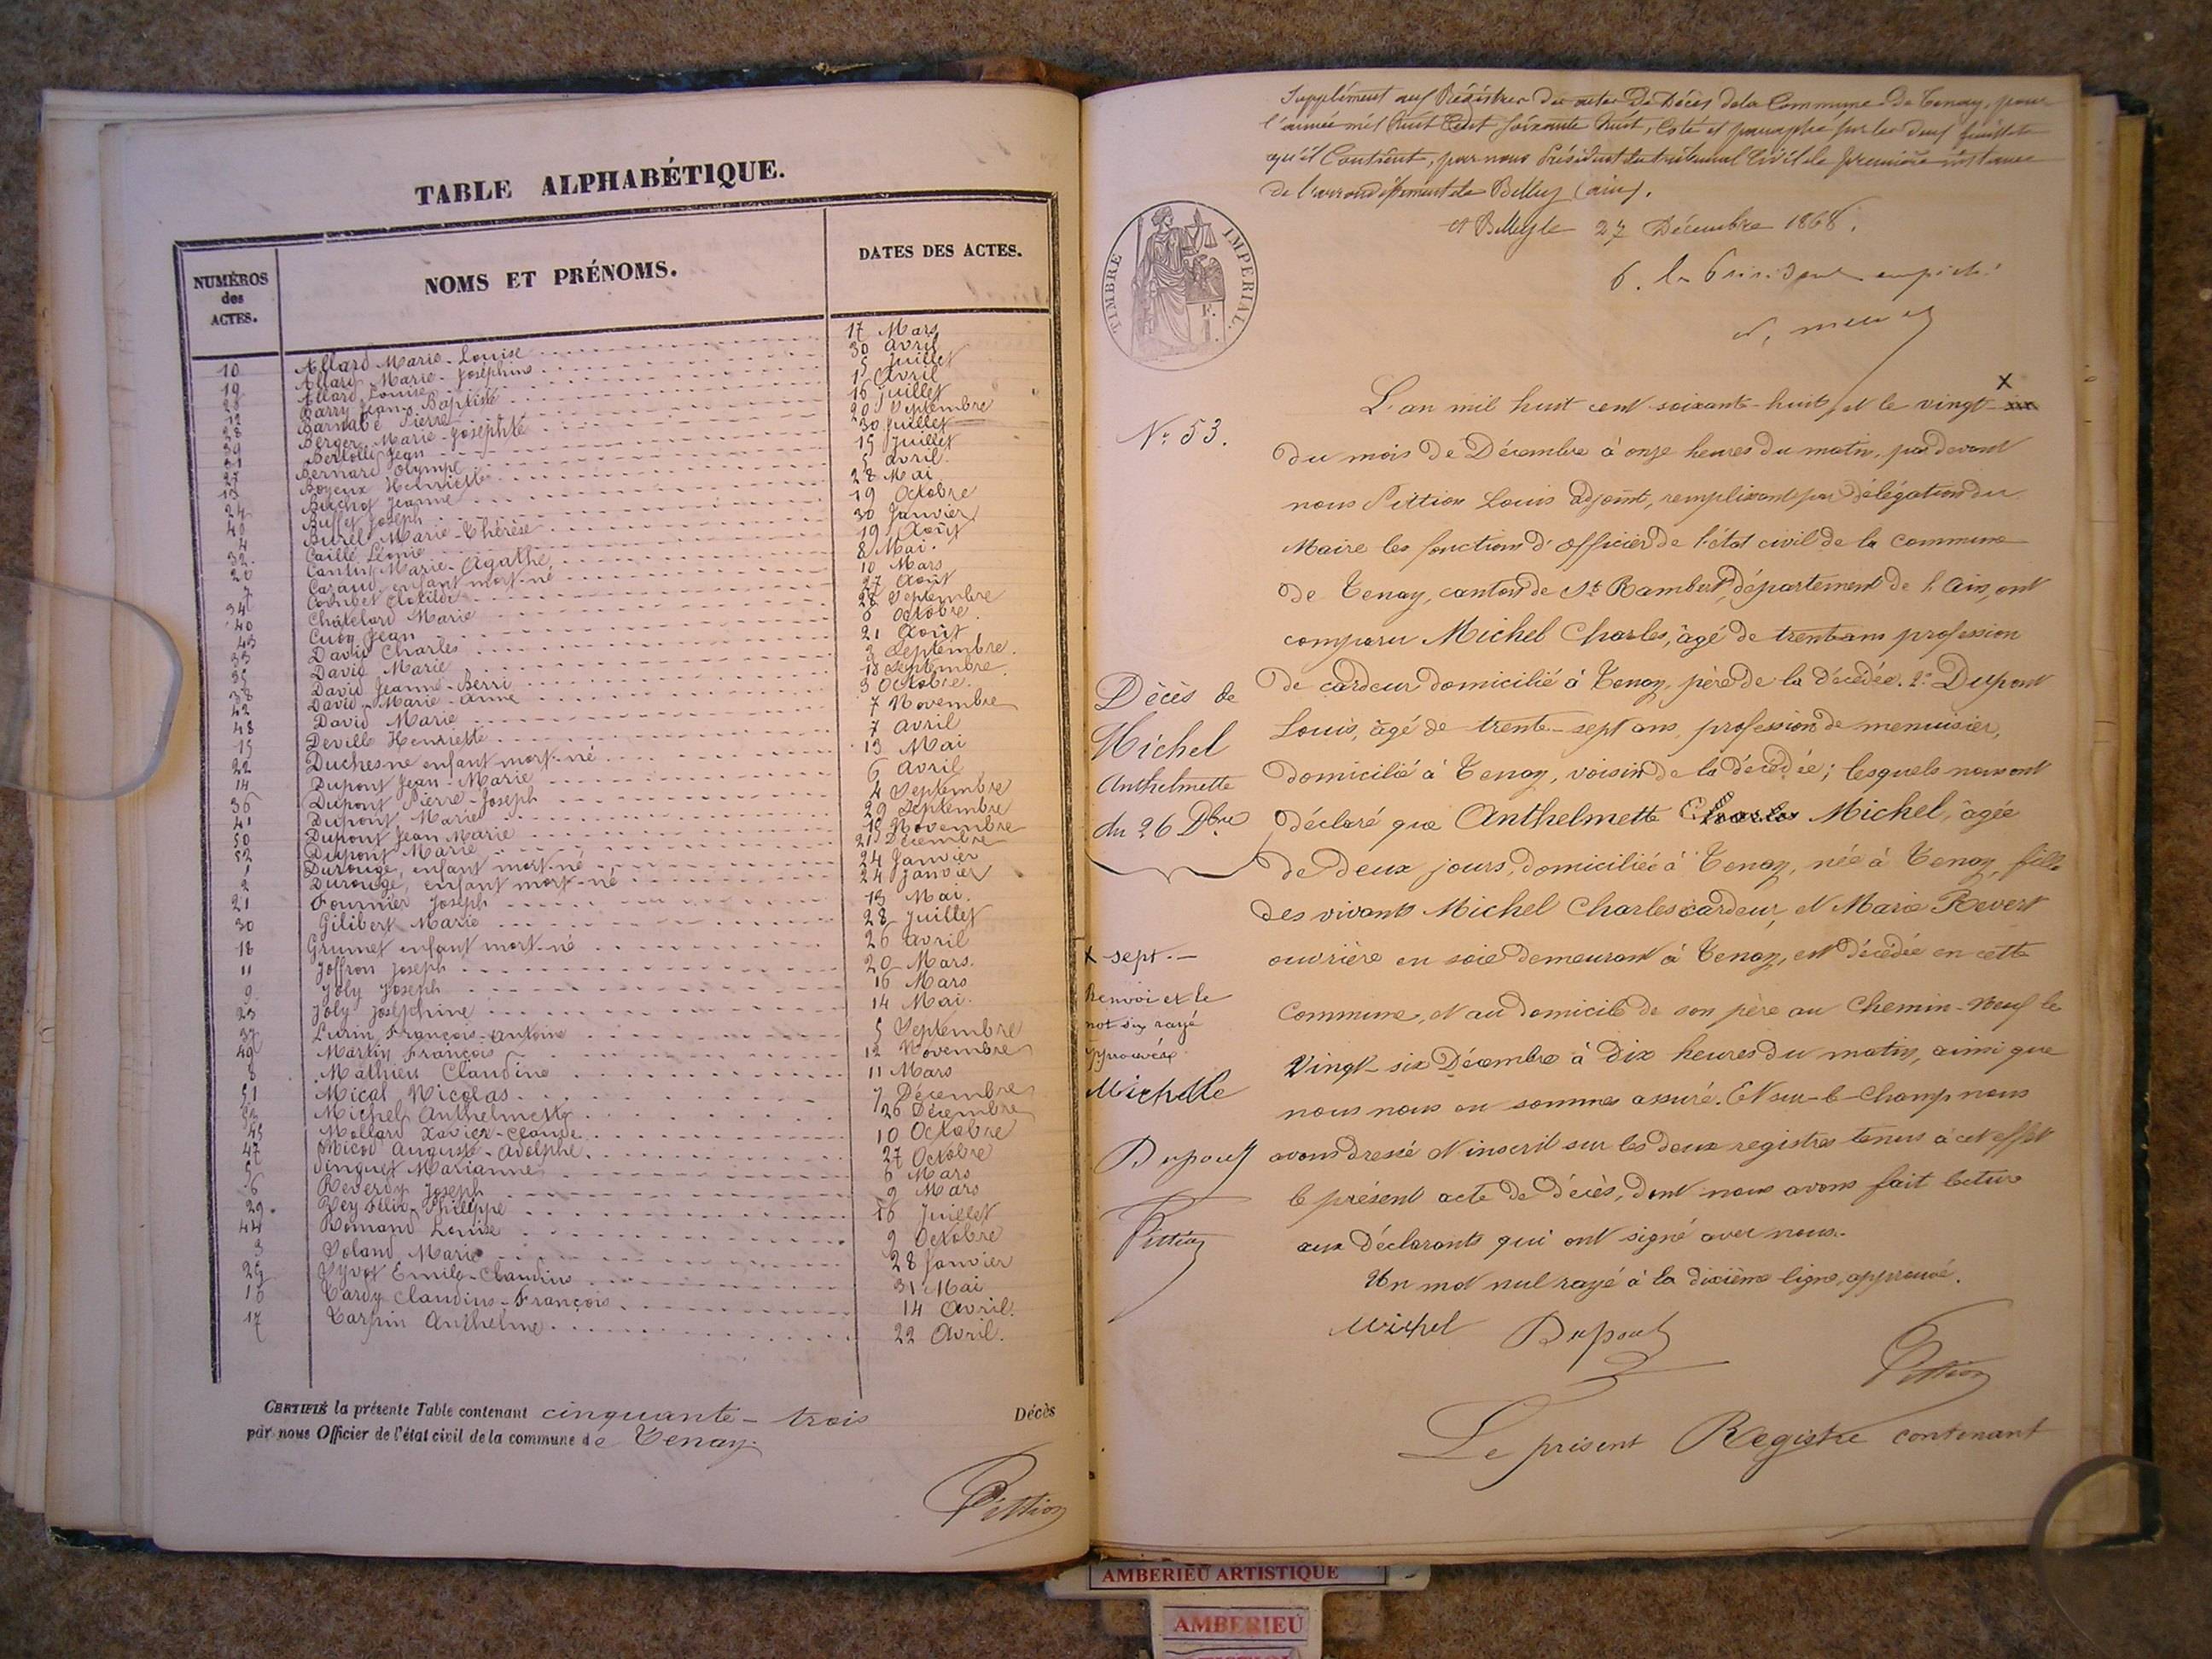 TABLE ALPHABÉTIQUE.
NUMÉROS des ACTES.
NOMS ET PRÉNOMS.
DATES DES ACTES.
10 Allard Marie-Louise 17 Mars
19 Allard Marie-Joséphine 30 Avril
Allard Louise 5 Juillet
12 Barry Jean-Baptiste 1 Avril
28 Barnabé Pierre 16 Juillet
39 Berger Marie-Josephte 20 Septembre
31 Bertollé Jean 30 Juillet
27 Bernard Olympe 15 Juillet
13 Boyeux Henriette 5 Avril
24 Buchot Jeanne 28 Mai
Buffet Joseph 19 Octobre
4 Burel Marie-Thérèse 30 Janvier
32 Caille Léonie 19 Août
20 Marie-Agathe 8 Mai
7 Caraud, enfant mort-né 10 Mars
34 Combet Clotilde 27 Août
40 Châtelard Marie 28 Septembre
43 Cuny Jean 8 Octobre
33 David Charles 21 Août
35 David Marie 3 Septembre
38 David Jeanne-Berri 18 Septembre
42 David Marie-Anne 3 Octobre
48 David Marie 7 Novembre
15 Deville Henriette 7 Avril
22 Duchesne enfant mort-né 13 Mai
14 Dupont Jean-Marie 6 Avril
36 Dupont Pierre-Joseph 4 Septembre
41 Dupont Marie 29 Septembre
50 Dupont Jean Marie 15 Novembre
52 Dupont Marie 21 Décembre
1 Durouge, enfant mort-né 24 Janvier
2 Durouge, enfant mort-né 24 Janvier
21 Fournier Joseph 13 Mai
30 Gilibert Marie 28 Juillet
18 Grumet enfant mort-né 26 Avril
11 Joffron Joseph 20 Mars
9 Joly Joseph 16 Mars
23 Joly Joséphine 14 Mai
37 Lurin François-Antoine 5 Septembre
49 Martin François 12 Novembre
8 Mathieu Claudine 11 Mars
51 Micat Nicolas 7 Décembre
53 Michel Anthelmette 26 Décembre
45 Mollard Xavier-Claude 10 Octobre
47 Auguste-Adolphe 27 Octobre
5 Pinguet Marianne 6 Mars
6 Reverdy Joseph 9 Mars
29 Rey Félix-Philippe 16 Juillet
44 Romand Louise 9 Octobre
3 Soland Marie 28 Janvier
25 Emile-Claudius 31 Mai
16 Tardy Claudius-François 14 Avril
17 Tarpin Anthelme 22 Avril
CERTIFIÉ la présente Table contenant cinquante-trois Décès
par nous Officier de l'état civil de la commune de Tenay.
Pittion
Supplément aux Régistres des actes De Décès dela Commune De Tenay, pour
l'année mil huit Cent soixante huit, Coté et paraphé sur les deux feuillets
qu'il Contient, par nous Président du tribunal Civil de première instance
de l'arrondissement de Belley (ain).
à Belley le 27 Décembre 1868.
P. le Président empêché
TIMBRE IMPERIAL.
F.
N° 53.
L'an mil huit cent soixante-huit, et le vingt-six X
du mois de Décembre à onze heures du matin, par devant
nous Pittion Louis adjoint, remplissant par délégation du
Maire les fonctions d'officier de l'état civil de la commune
de Tenay, canton de St Rambert, département de l'Ain, ont
comparu Michel Charles, âgé de trente ans profession
de cardeur domicilié à Tenay, père de la décédée. 2° Dupont
Louis, âgé de trente-sept ans, profession de menuisier,
domicilié à Tenay, voisin de la décédée; lesquels nous ont
déclaré que Anthelmette Charles Michel, âgée
de deux jours, domiciliée à Tenay, née à Tenay, fille
des vivants Michel Charles cardeur, et Marie Revert
ouvrière en soie demeurant à Tenay, est décédée en cette
commune, et au domicile de son père au Chemin-Neuf le
Vingt-six Décembre à dix heures du matin, ainsi que
nous nous en sommes assuré. Et sur-le-champ nous
avons dressé et inscrit sur les deux registres tenus à cet effet
le présent acte de décès, dont nous avons fait lecture
aux déclarants qui ont signé avec nous.
Un mot nul rayé à la dixième ligne, approuvé.
Michel Dupont Pittion
Décès de
Michel
Anthelmette
du 26 Dbre
X sept.-
Renvoi et le
mot six rayé
approuvés
Michel
Dupont
Pittion
Le présent Registre contenant
AMBERIEU ARTISTIQUE
AMBERIEU